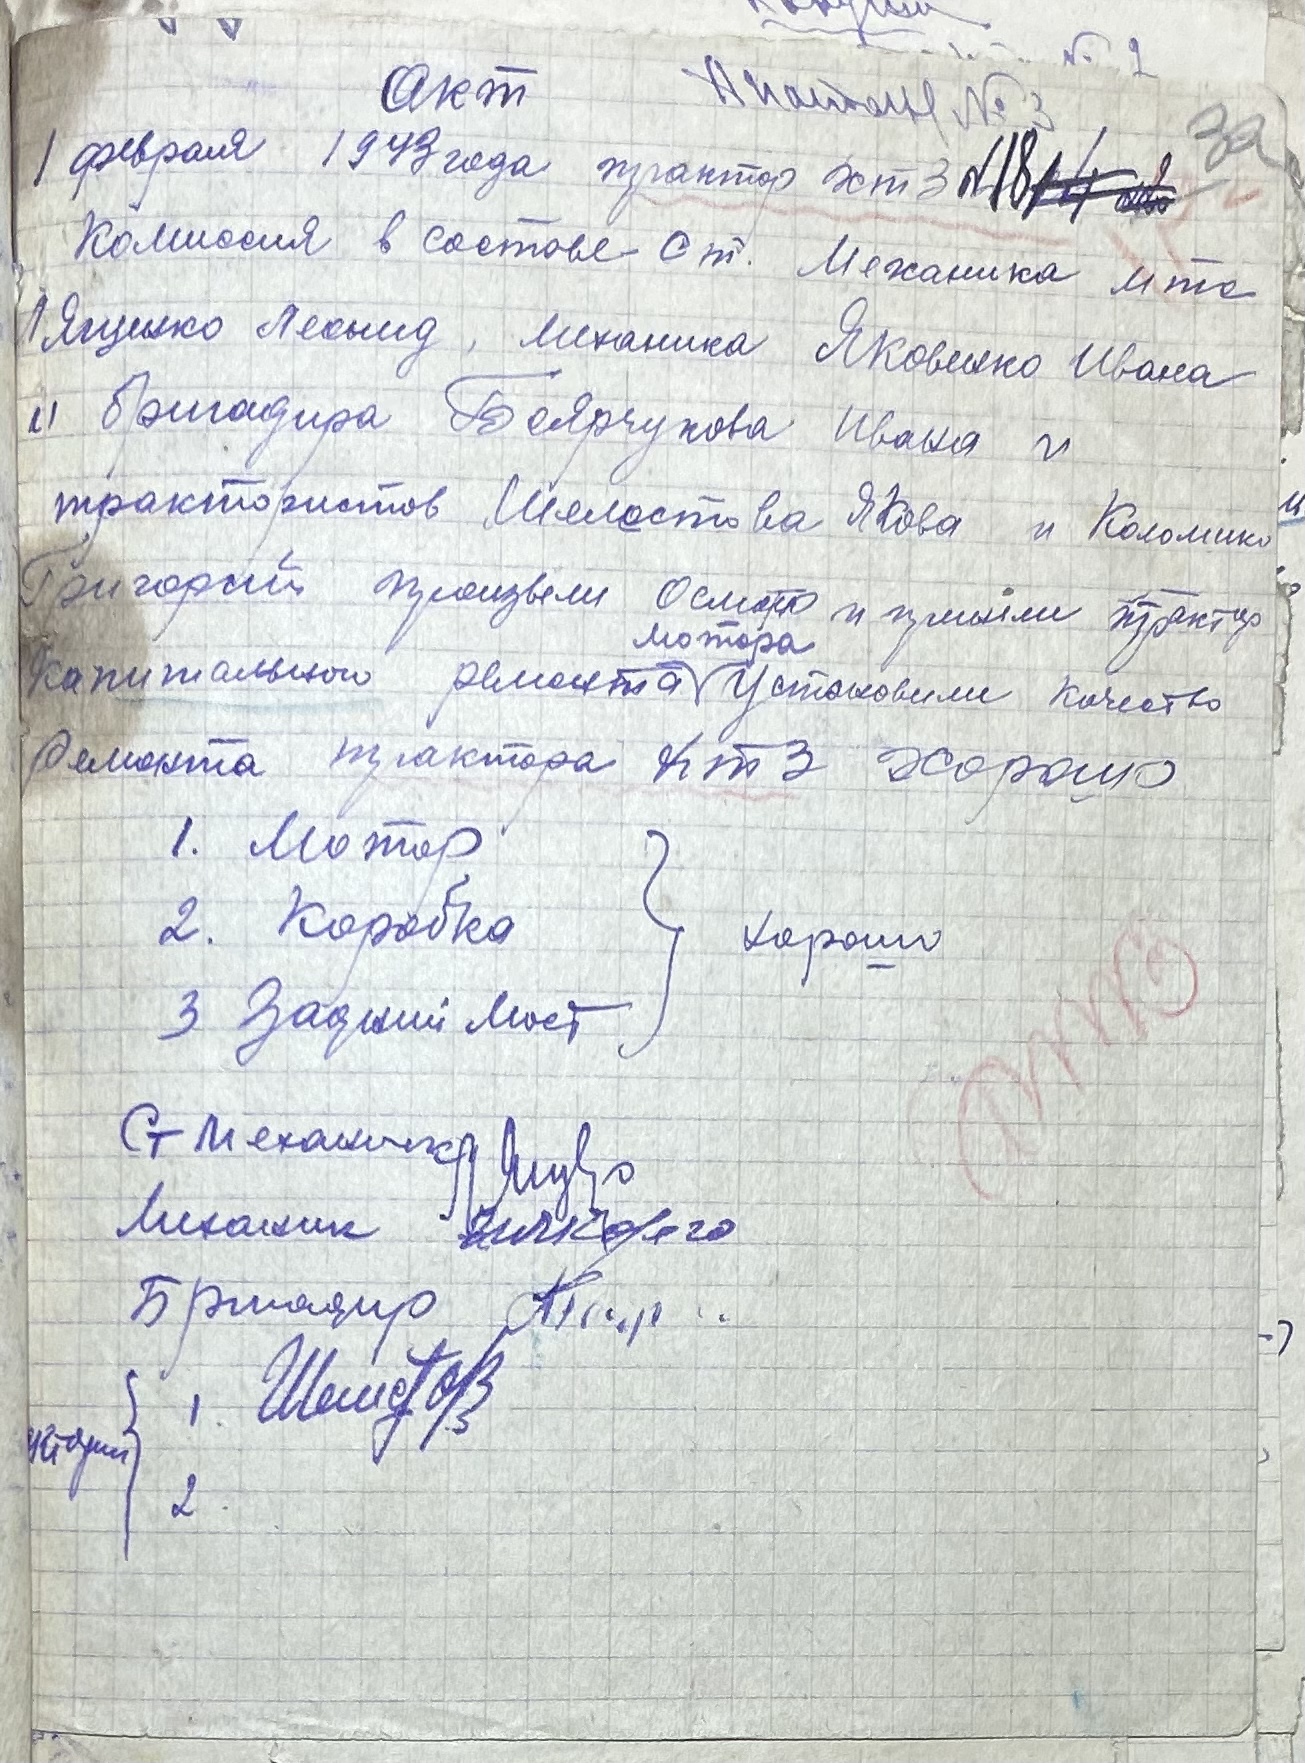 Акт
№ 3
1 февраля 1943 года трактор ХТЗ №18
Комиссия в составе Ст. Механика мтс
Ященко Леонид, механика Яковенко Ивана
и бригадира Боярчукова Ивана и
трактористов Шеластова Якова и Коломико
Григорий произвели осмотр и приняли трактор
мотора
капитального ремонта Установили качество
Ремонта трактора ХТЗ хорошо
1. Мотор
2. Коробка
хорошо
3 Задний Мост
Ст Механик
Механик
Бригадир
1. Шеластов
2.